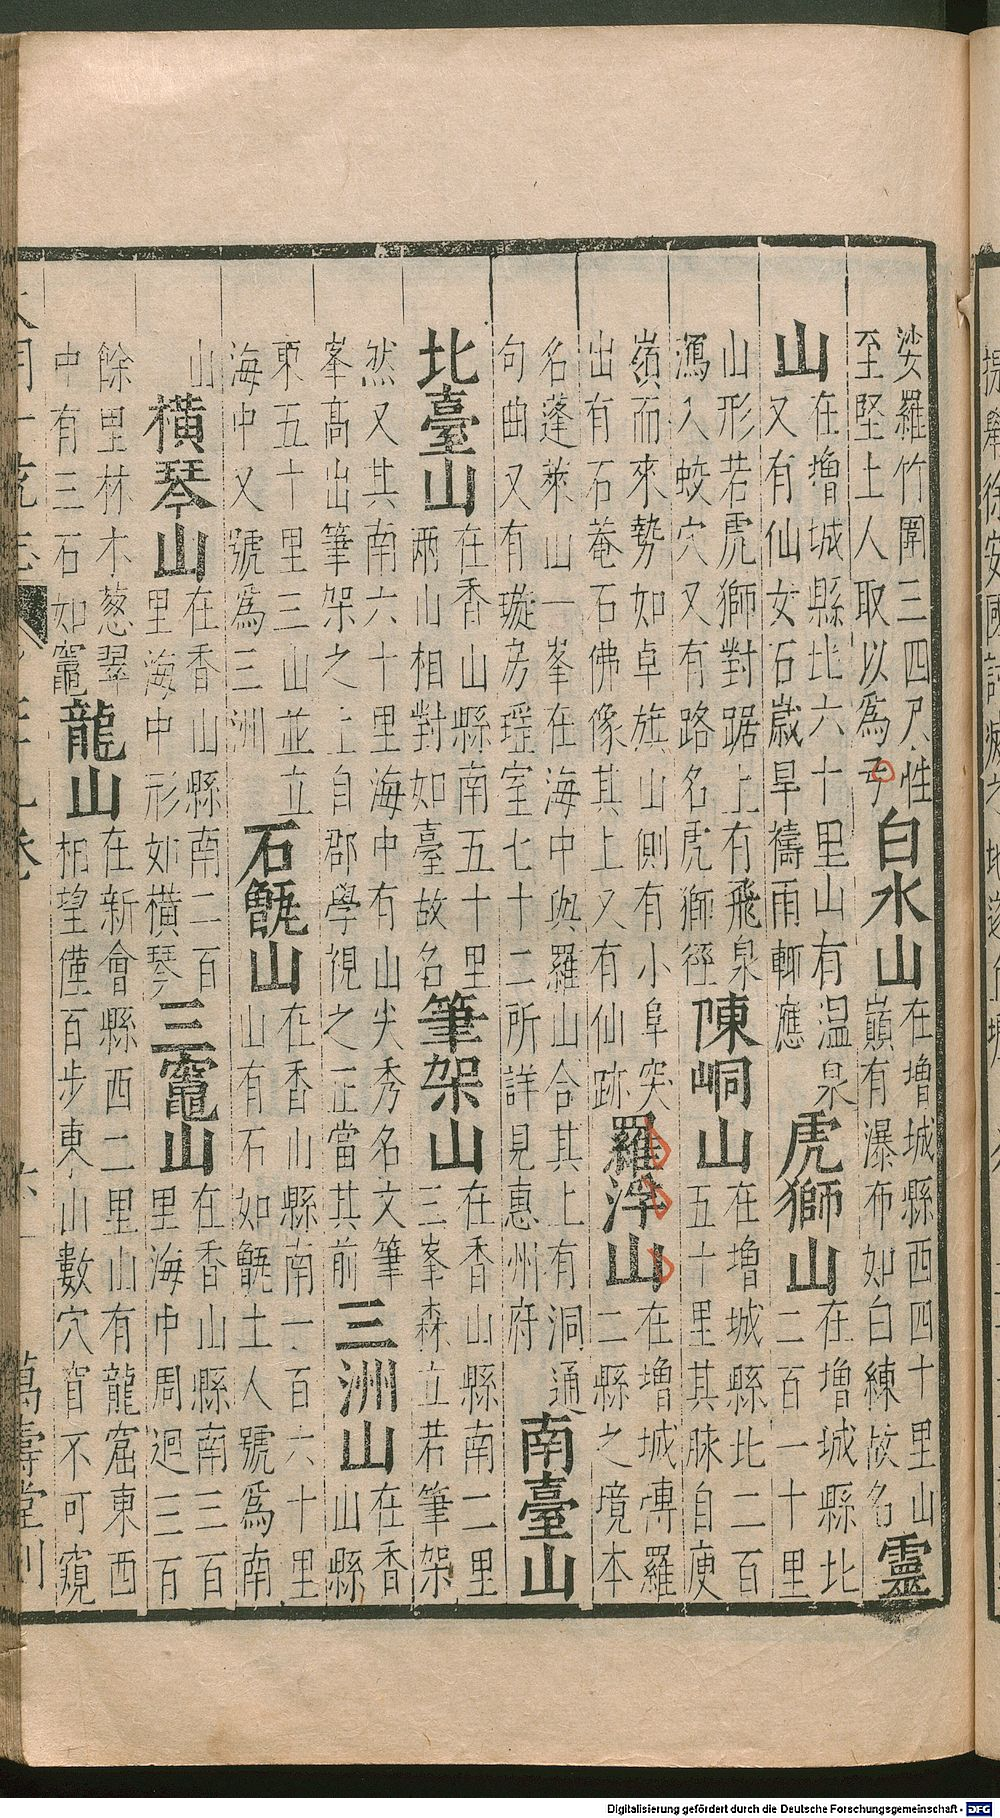 娑羅竹圍三四尺性
至堅上人取以為弓
白水山
在增城縣西四十里山
巔有瀑布如白練故名
靈
山
在增城縣北六十里山有温泉
又有仙女石歲旱禱雨輒應
虎獅山
在增城縣北
二百一十里
山形若虎獅對踞上有飛泉
瀉入蛟穴又有路名虎獅徑
陳峒山
在增城縣北二百
五十里其脉自庾
嶺而來勢如卓旗山側有小阜突
出有石菴石佛像其上又有仙跡
羅浮山
在增城博羅
二縣之境本
名蓬萊山一峯在海中與羅山合其上有洞通
句曲又有璇房瑶室七十二所詳見惠州府
南臺山
北臺山
在香山縣南五十里
兩山相對如臺故名
筆架山
在香山縣南二里
三峯森立若筆架
然又其南六十里海中有山尖秀名文筆
峯高出筆架之上自郡學視之正當其前
三洲山
在香
山縣
東五十里三山並立
海中又號為三洲
石甑山
在香山縣南一百六十里
山有石如甑土人號為南
山
橫琴山
在香山縣南二百
里海中形如橫琴
三竈山
在香山縣南三百
里海中周迴三百
餘里林木葱翠
中有三石如竈
龍山
在新會縣西二里山有龍窟東西
相望僅百步東山數穴窅不可窺
萬壽堂刊
Digitalisierung gefördert durch die Deutsche Forschungsgemeinschaft - DFG